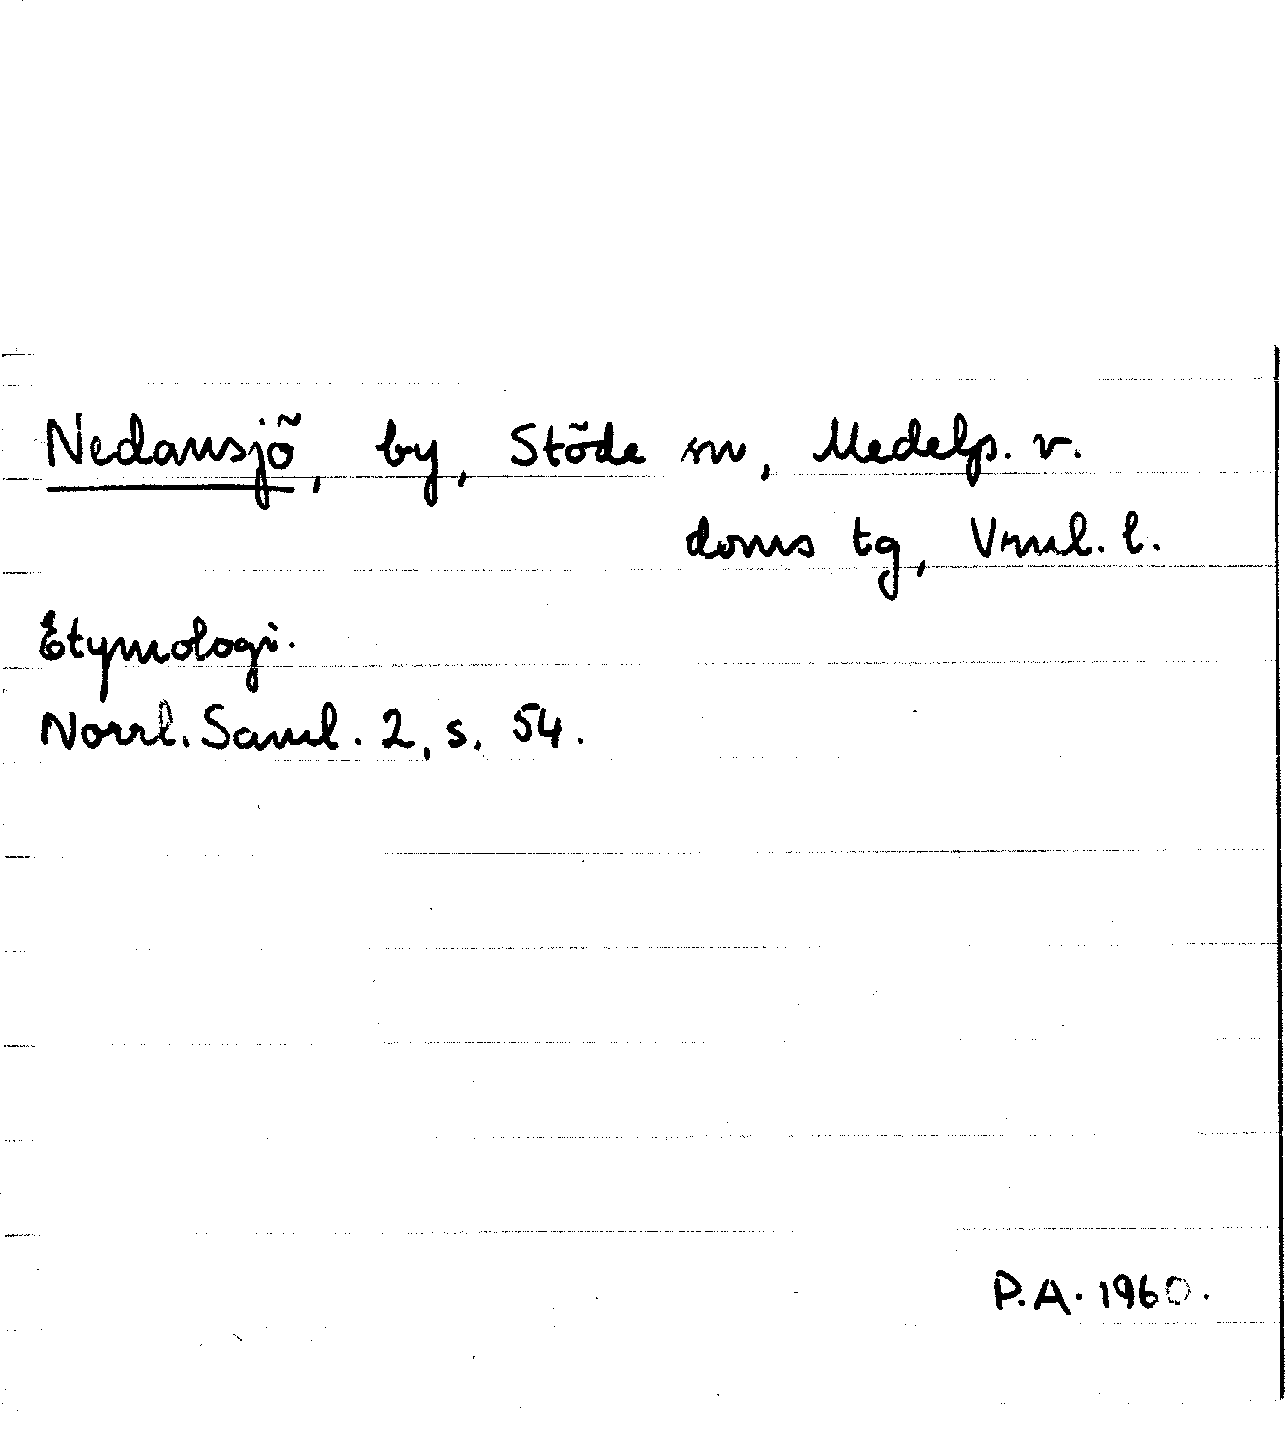 Nedansjö, by, Stöde sn, Medelp. v.
doms tg, Vrnl. l.
Etymologi.
Norrl. Saml. 2, s. 54.
P.A. 1960.